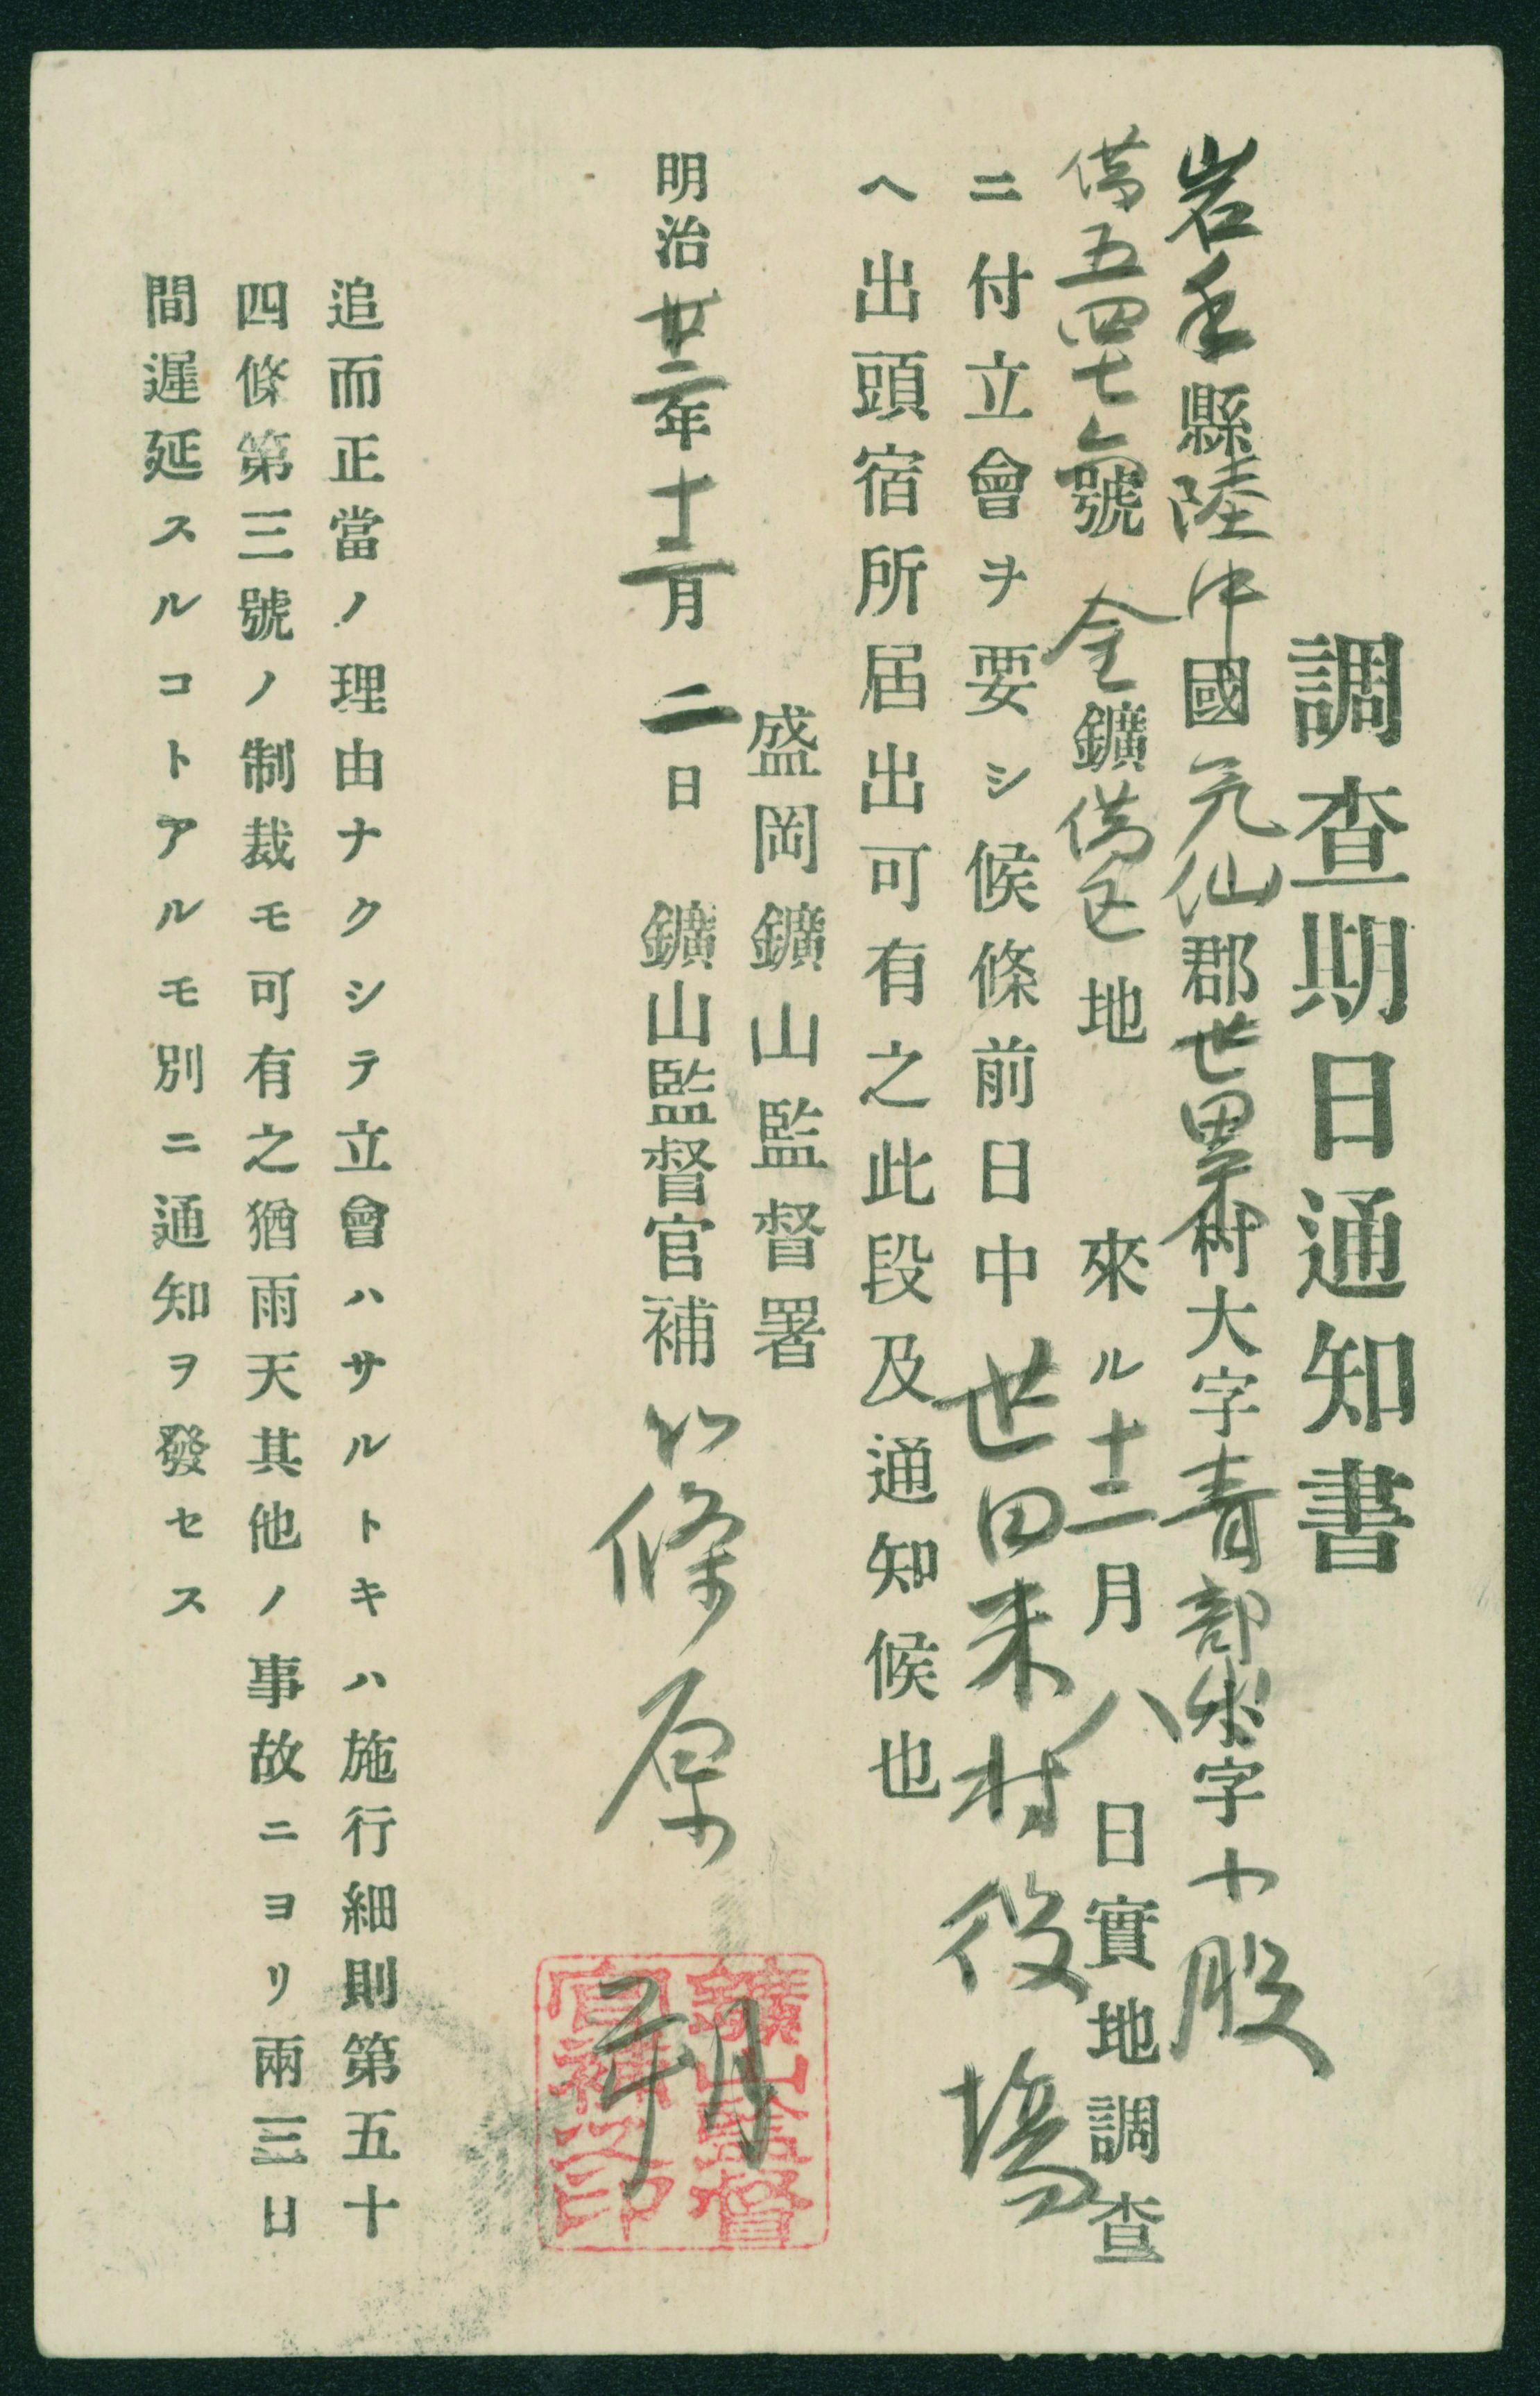 調査期日通知書
岩手縣陸中國気仙郡世田米村大字青部小字十股
借五四七六號 金鑛借区地 來ル十二月八日實地調査
ニ付立會ヲ要シ候條前日中世田米村役場
ヘ出頭宿所届出可有之此段及通知候也
盛岡鑛山監督署
明治廿二年十二月二日 鑛山監督官補 篠原
追而正當ノ理由ナクシテ立會ハサルトキハ施行細則第五十
四條第三號ノ制裁モ可有之猶雨天其他ノ事故ニヨリ兩三日
間遲延スルコトアルモ別ニ通知ヲ發セス
鑛山監督
官補之印